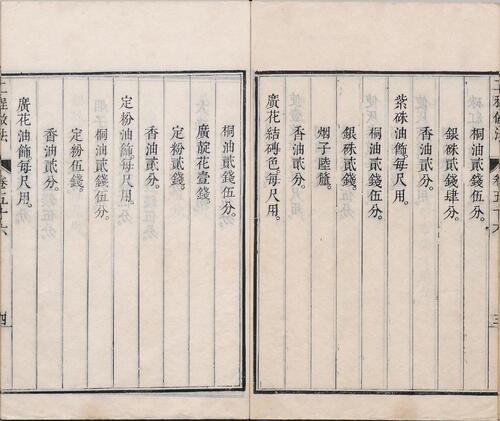 桐油貳錢伍分。
銀硃貳錢肆分。
香油貳分。
紫硃油飾。每尺用。
桐油貳錢伍分。
銀硃貳錢。
烟子陸釐。
香油貳分。
廣花結磚色。每尺用。
桐油貳錢伍分。
廣靛花壹錢。
定粉貳錢。
香油貳分。
定粉油飾。每尺用。
桐油貳錢伍分。
定粉伍錢。
香油貳分。
廣花油飾。每尺用。
工程做法 卷五十六 四